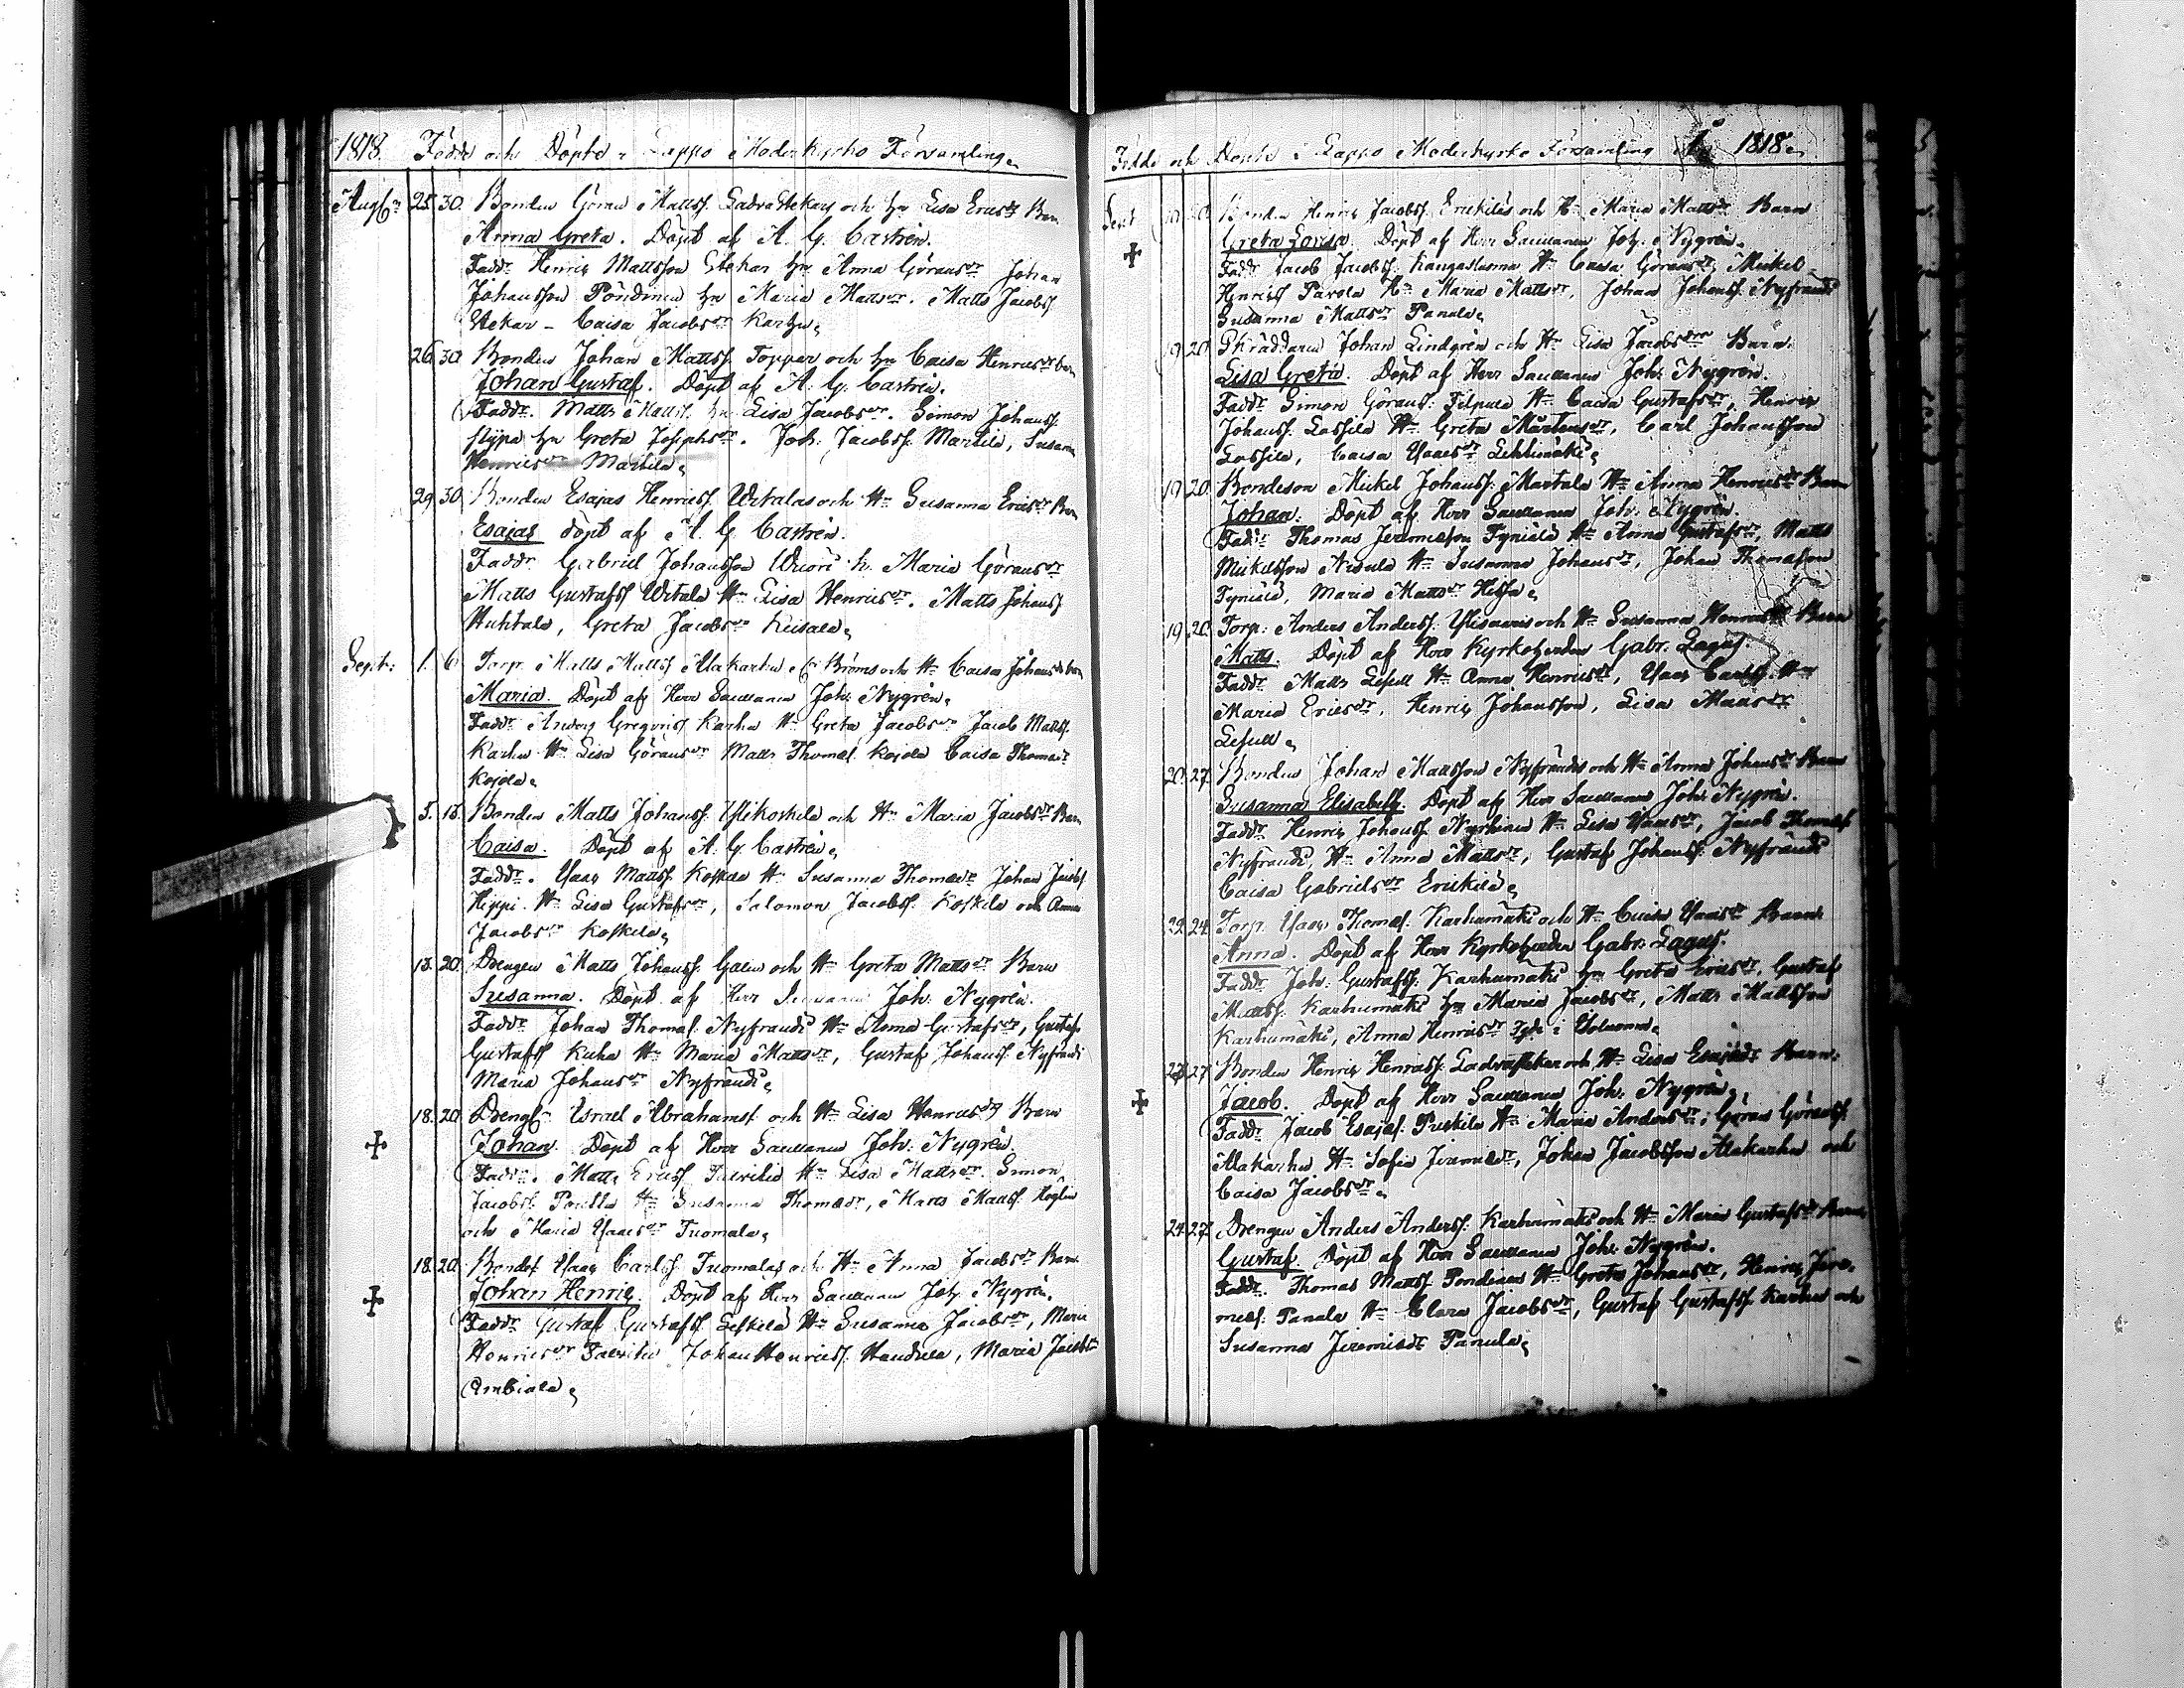 1818. Födde och Döpte i Lappo Moderkyrko Församling
Aug. 25. 30. Bonden Göran Mattss. Ladva Stekars och H. Lisa Ericsdr Barn
Anna Greta. Döpt af A. G. Castrén.
Faddr Henric Mattsson Stekar H. Anna Göransdr Johan
Johansson Pöndinen H. Maria Mattsdr. Matts Jacobss.
Stekar - Caisa Jacobsdr Karhu
26. 30. Bonden Johan Mattss. Topper och H. Caisa Henricsdr barn
Johan Gustaf. Döpt af A. G. Castrén.
Faddr. Matts Mattss. H. Lisa Jacobsdr. Simon Johanss.
H. Greta Josephsdr. Joh. Jacobss. Martila, Susanna
Henricsdr Martila
29. 30. Bonden Esajas Henricss. Witalas och H. Susanna Ericsdr Barn
Esajas döpt af A. G. Castrén.
Faddr Gabriel Johansson Wuori h. Maria Göransdr
Matts Gustafss Witala H. Lisa Henricsdr. Matts Johanss
Huhtala, Greta Jacobsdr Keisala
Sept: 1. 6. Torp. Matts Mattss Alakarhu och H. Caisa Johansdr barn
Maria. Döpt af Herr Sacellanen Joh. Nygrén.
Faddr Anders Gregoriss Karhu H. Greta Jacobsdr Jacob Mattss.
Karhu H. Lisa Göransdr Matts Thomæs. Kojola Caisa Thomædr
Kojola
5. 13. Bonden Matts Johanss. Ylikoskela och H. Maria Jacobsdr Barn
Caisa. Döpt af A. G. Castrén
Faddr. Isaac Mattss. Koskela H. Susanna Thomædr Johan Jacobs
Hippi. H. Lisa Gustafsdr, Salomon Jacobss. Koskela och Anna
Jacobsdr Koskela
13. 20. Drengen Matts Johanss. och H. Greta Mattsdr Barn
Susanna. Döpt af Herr Sacellanen Joh. Nygrén.
Faddr Johan Thomæs. Nyfrändi H. Anna Gustafsdr, Gustaf
Gustafss Kuha H. Maria Mattsdr, Gustaf Johanss. Nyfrändi
Maria Johansdr Nyfrändi
18. 20. Drengen Israel Abrahamss. och H. Lisa Henricsdr Barn
Johan. Döpt af Herr Sacellanen Joh. Nygrén.
Faddr. Matts Ericss H. Lisa Mattsdr. Simon
Jacobss. H. Susanna Thomædr, Matts Mattss.
och Maria Isaacsdr Tuomala
18. 20. Bondes. Isaac Carlss. Tuomalas och H. Anna Jacobsdr Barn
Johan Henric. Döpt af Herr Sacellanen Joh. Nygrén.
Faddr Gustaf Gustafss Leskelä H. Susanna Jacobsdr, Maria
Henricsdr Johan Henricss. Haudala, Maria Jacobsdr
Ambiala
Födde och Döpte i Lappo Moderkyrko Församling 1818.
Sept. 20. Bonden Henric Jacobss. Erickiläs och H. Maria Mattsdr Barn
Greta Lovisa. Döpt af Herr Sacellanen Joh. Nygrén.
Faddr Jacob Jacobss. Kangasluoma H. Caisa Göransdr, Mickel
Henricss Pavola H. Maria Mattsdr, Johan Johanss. Nyfrändi
Susanna Mattsdr Panula
19. 20. Skräddaren Johan Lindgrén och H. Lisa Jacobsdr Barn.
Lisa Greta. Döpt af Herr Sacellanen Joh. Nygrén.
Faddr Simon Göranss. Filpula H. Caisa Gustafsdr, Henric
Johanss. Lassila H. Greta Mårtensdr, Carl Johansson
Lassila, Caisa Isaacsdr Lehtimäki
19. 20. Bondeson Mickel Johanss. Martala H. Anna Henricsdr Barn
Johan. Döpt af Herr Sacellanen Joh. Nygrén.
Faddr Thomas Jeremiasson Tyniälä H. Anna Gustafsdr, Matts
Mickelsson Nisula H. Susanna Johansdr, Johan Thomasson
Tyniälä, Maria Mattsdr Hissa
19. 20. Torp. Anders Anderss. och H. Susanna Henricsdr Barn
Matts. Döpt af Herr Kyrkoherden Gabr. Lagus.
Faddr Matts Lesell H. Anna Henricsdr, Isaac Carlss. H.
Maria Ericsdr, Henric Johansson, Lisa Mattsdr
Lesell
20. 27. Bonden Johan Mattsson Nyfrändis och H. Anna Johansdr Barn
Susanna Elisabeth. Döpt af Herr Sacellanen Joh. Nygrén.
Faddr Henric Johanss. Nyrhinen H. Lisa Isaacsdr, Jacob Thomæs
Nyfrändi, H. Anna Mattsdr, Gustaf Johanss. Nyfrändi
Caisa Gabrielsdr Erickilä
22. 24. Torp. Isaac Thomæs. Karhumäki och H. Caisa Isaacsdr Barn
Anna. Döpt af Herr Kyrkoherden Gabr. Lagus.
Faddr Joh. Gustafss. Karhumäki H. Greta Ericsdr, Gustaf
Mattss. Karhumäki H. Maria Jacobsdr, Matts Mattsson
Karhumäki, Anna Henricsdr
27. Bonden Henric Henricss. Ladvastekar och H. Lisa Esajædr Barn.
Jacob. Döpt af Herr Sacellanen Joh. Nygrén.
Faddr Jacob Esajæs. Puskila H. Maria Andersdr, Göran Göranss.
Alakarhu H. Sofia Jeremiædr, Johan Jacobsson Alakarhu och
Caisa Jacobsdr
24. 27. Drengen Anders Anderss. Karhumäki och H. Maria Gustafsdr Barn
Gustaf. Döpt af Herr Sacellanen Joh. Nygrén.
Faddr. Thomas Mattss Pöndinen H. Greta Johansdr, Henric Jere-
miæs. Panula H. Clara Jacobsdr, Gustaf Gustafss. Karhu och
Susanna Jeremiædr Panula